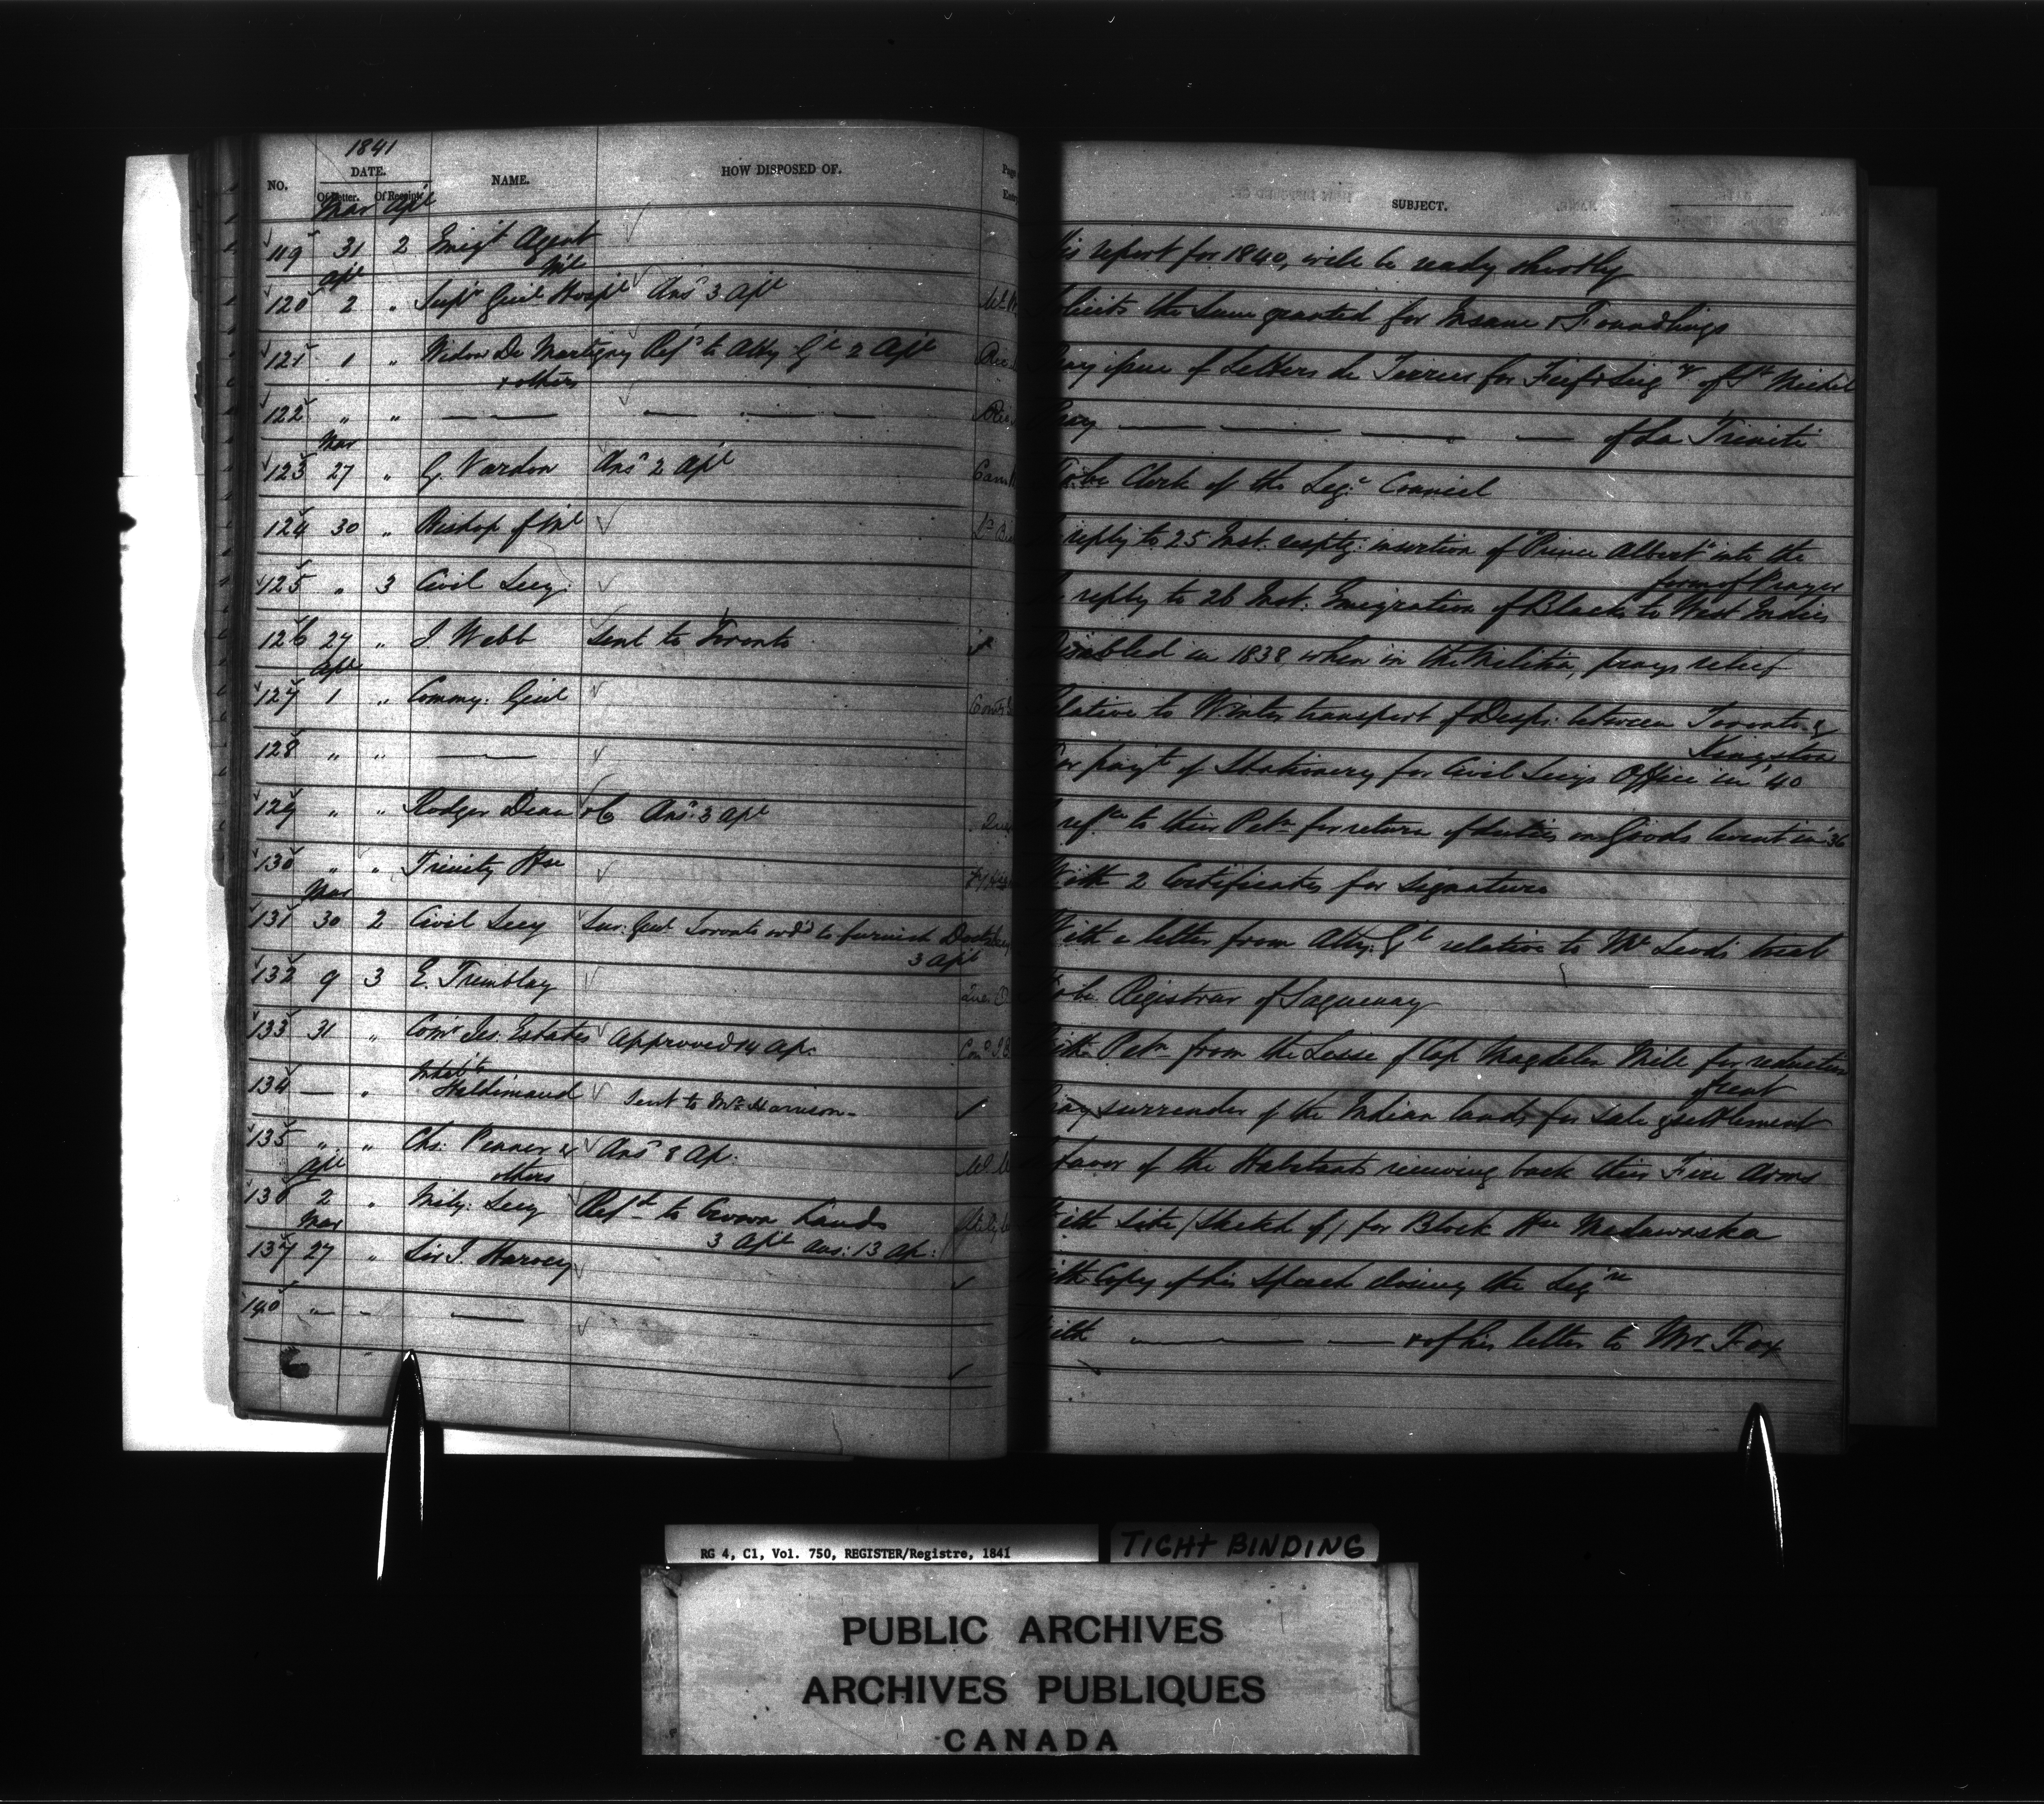 1841
NO. DATE. NAME. HOW DISPOSED OF. SUBJECT.
Of Letter. Of Receipt.
Mar Apl
119 31 2 Emigt Agent report for 1840, will be ready shortly
Apl
120 2 " Supr Genl Hospl Ml Ansd 3 Apl the Sum granted for Insane & Foundlings
121 1 " Widow De Martigny Refd to Atty Gl 2 Apl issue of Letters de Terrier for Fief & Seigry of St Michel
& others
122 " " — — — — — — of La Trinité
Mar
123 27 " G. Vardon Ansd 2 Apl To be Clerk of the Legve Council
124 30 " Bishop of Ml reply to 25 Inst. respg. insertion of "Prince Albert" into the
form of Prayer
125 " 3 Civil Secy. reply to 26 Inst. Emigration of Blacks to West Indies
126 27 " J. Webb Sent to Toronto Disabled in 1838 when in the Militia, prays relief
Apl
127 1 " Commy. Genl Relative to Winter transport of Desps. between Toronto &
Kingston
128 " " — For payt of Stationery for Civil Secys Office in '40
129 " " Rodger Dean & Co Ansd. 3 Apl refce to their Petn for return of duties on Goods burnt in '36
130 " " Trinity Hse With 2 Certificates for Signature
Mar
131 30 2 Civil Secy Sur. Genl Toronto ord'd to furnish With a letter from Atty. Gl relative to McLeod's trial
3 Apl
132 9 3 E. Tremblay To be Registrar of Saguenay
133 31 " Comr Jes. Estates Approved 14 Ap. With Petn from the Lessee of Cap Magdelen Mill for reduction
of rent
134 — " Inhabts Haldimand Sent to Mr Harrison - Pray surrender of the Indian lands for sale & settlement
135 " " Chs. Penner & Ansd 8 Ap. favor of the Habitants receiving back their Fire Arms
others
Apl
136 2 " Mily. Secy Refd to Crown Lands With Site / Sketch of / for Block Hse Madawaska
3 Apl ans: 13 Ap:
Mar
137 27 " Sir J. Harvey With Copy of his Speech closing the Legre
140 " — — With — — & of his letter to Mr. Fox
RG 4, C1, Vol. 750, REGISTER/Registre, 1841
TIGHT BINDING
PUBLIC ARCHIVES
ARCHIVES PUBLIQUES
CANADA